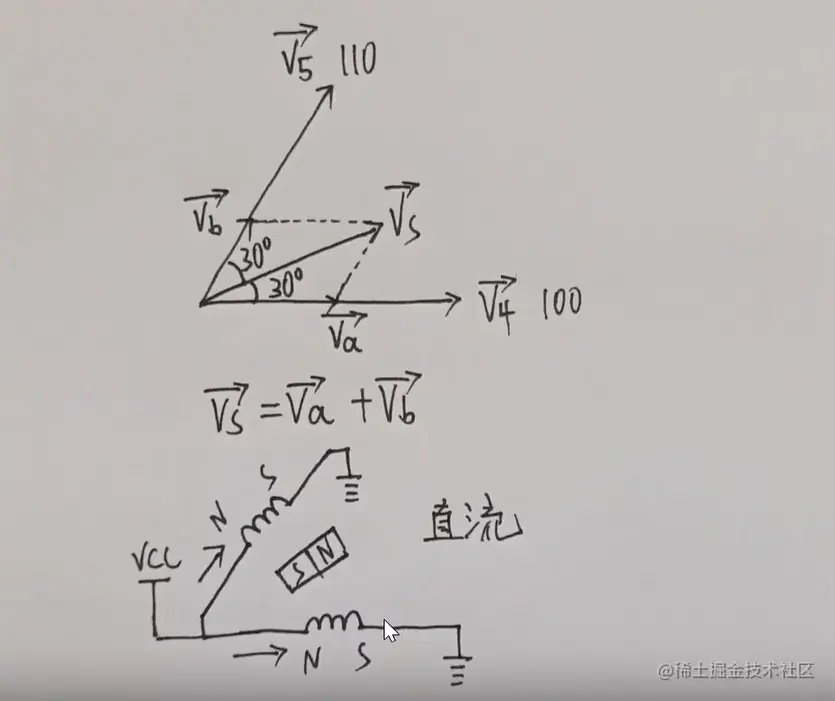 V5 110
Vb
Vs
30°
30°
V4 100
Va
Vs = Va + Vb
S
N
直流
VCC
S N
N S
@稀土掘金技术社区